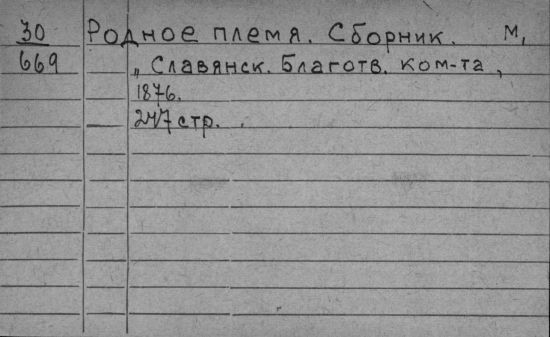 30 Родное племя. Сборник. М,
669 „ Славянск. Благотв. ком-та,
1876.
247 стр.